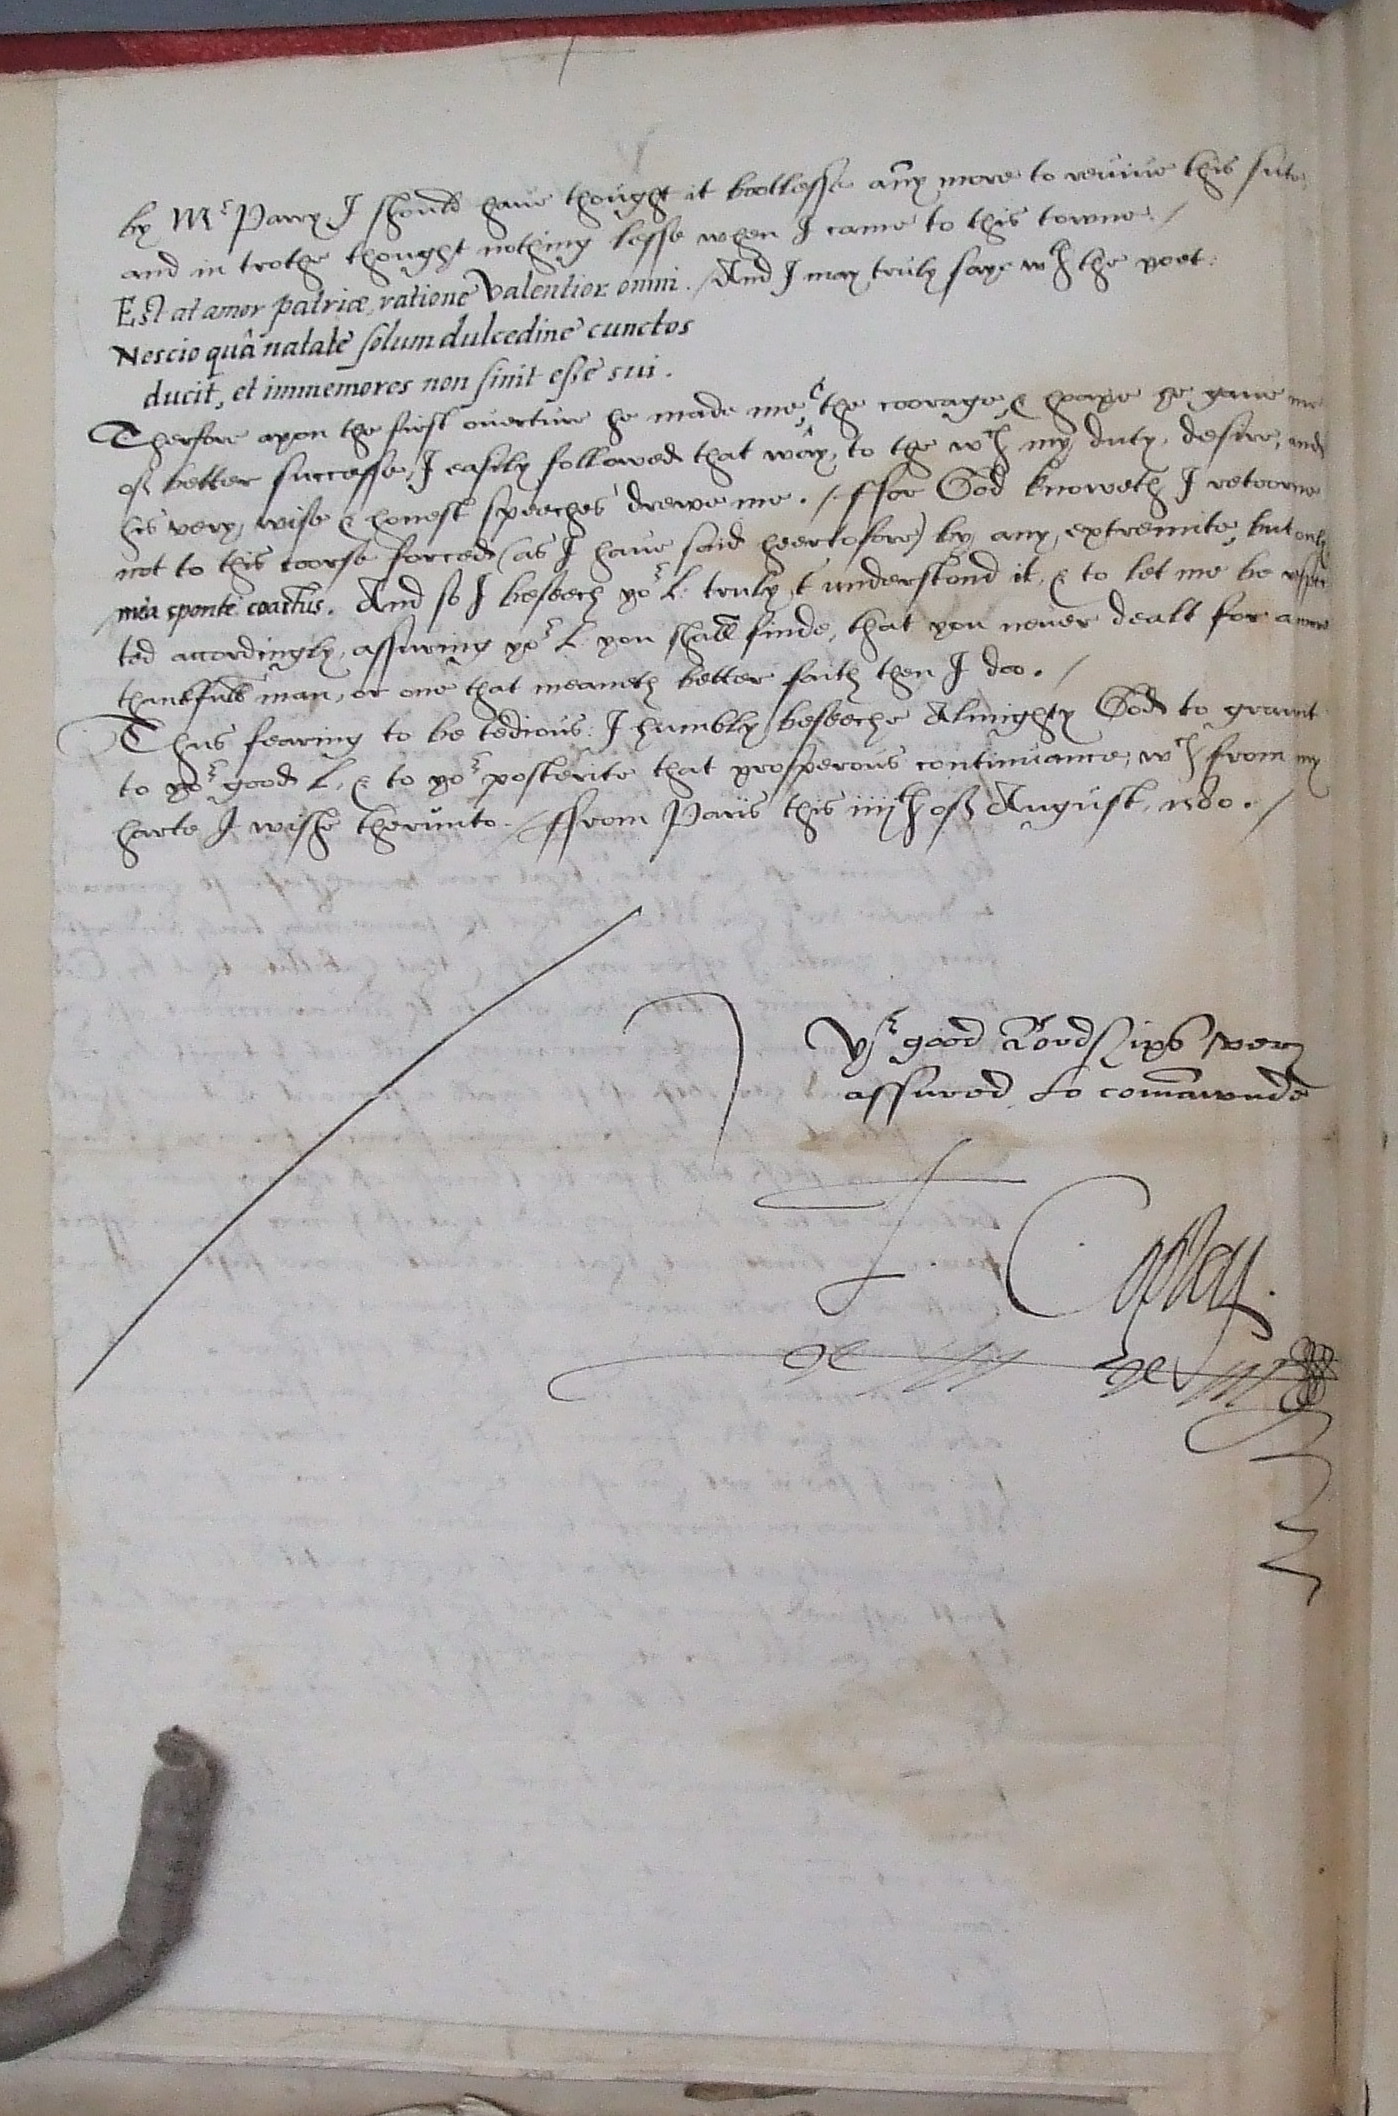 by Mr Parry I should haue thought it bootlesse any more to reuiue this sute,
and in trothe thought nothing lesse when I came to this towne. /
Est at amor patriæ, ratione valentior omni. / And I may truly saye wth the poet:
Nescio quâ natale solum dulcedine cunctos
ducit, et immemores non sinit esse sui.
Therfore apon the first ouerture he made me, & the coorage, & hoape he gaue me
of better successe, I easily followed that way, to the wch my duty, desire, and
his very wise & honest speeches drewe me. / ffor God knoweth I retoorne
not to this coorse forced (as I haue said heertofore) by any extremite, but only
mea sponte coactus. And so I beseech yor L. truly t'understond it, & to let me be respec
ted accordingly, assuring yor L. you shall finde, that you neuer dealt for a more
thankfull man, or one that meaneth better faith then I doo. /
Thus fearing to be tedious: I humbly beseeche Almighty God to graunt
to yor good L. & to yor posterite that prosperous continuance, wch from my
harte I wishe therunto. / ffrom Paris this iiijth of August, 1580. /
Yr good Lordships very
assured to comaunde
T Copley.